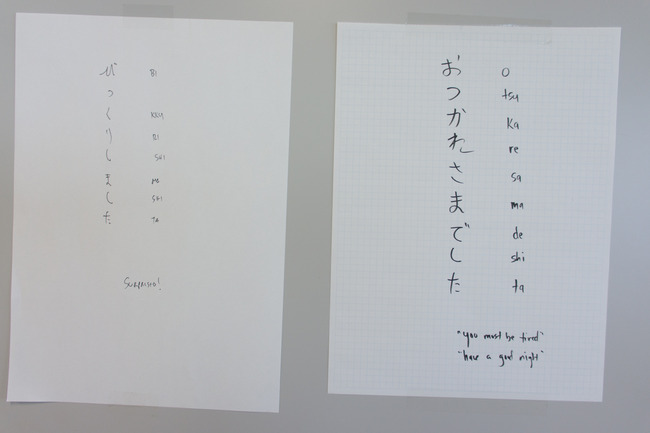 びっくりしました
BI
KKU
RI
SHI
MA
SHI
TA
SURPRISED!
おつかれさまでした
O
tsu
ka
re
sa
ma
de
shi
ta
"you must be tired"
"have a good night"